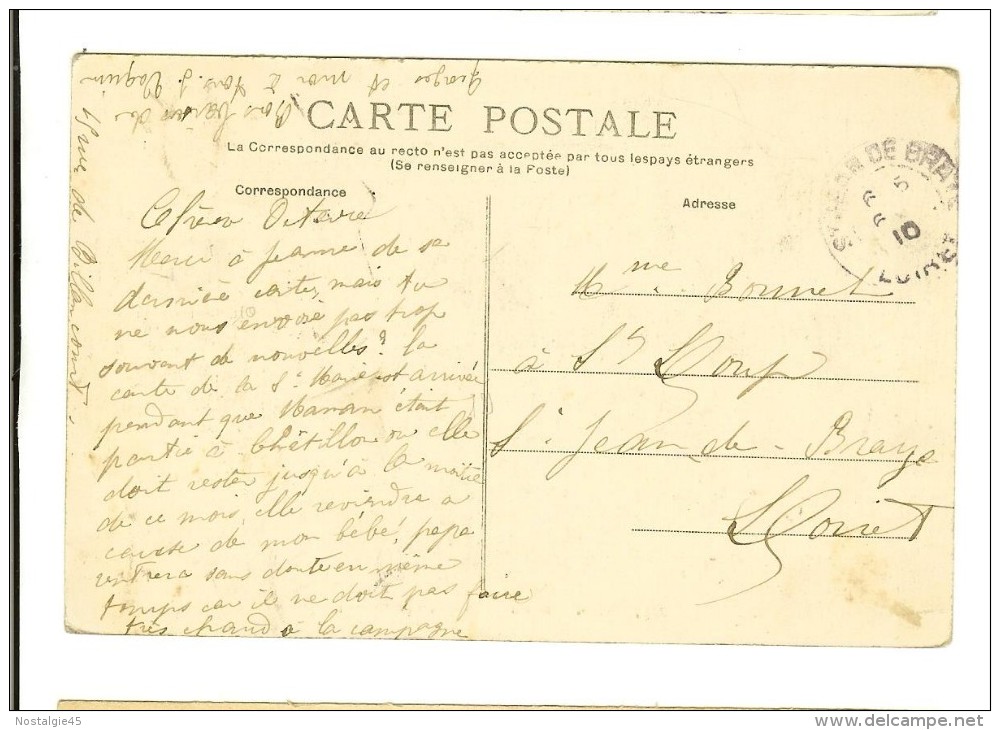 CARTE POSTALE
La Correspondance au recto n'est pas acceptée par tous les pays étrangers
(Se renseigner à la Poste)
Correspondance
Adresse
Merci à Jeanne de sa
dernière carte, mais tu
ne nous envoie pas trop
souvent de nouvelles? la
carte de la St Marie est arrivée
pendant que Maman était
partie à Châtillon ou elle
doit rester jusqu'à la moitié
de ce mois, elle reviendra a
cause de mon bébé, papa
rentrera sans doute en même
temps car il ne doit pas faire
très chaud à la campagne
rue de Billancourt.
Bons baisers de
Georges et
Mme Bonnet
à St Loup
St Jean-de-Braye
Loiret
DE BRAYE
5
10
LOIRET
Nostalgie45
www.delcampe.net